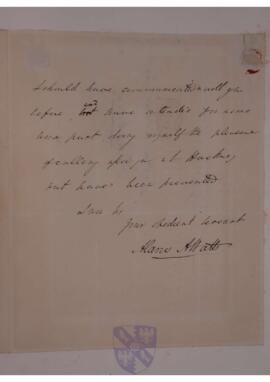 I should have communicated with you
before, and have intended for some
time past doing myself the pleasure
of calling upon you at Hastings
but have been prevented
I am Sir
your obedient servant
Alaric A Watts